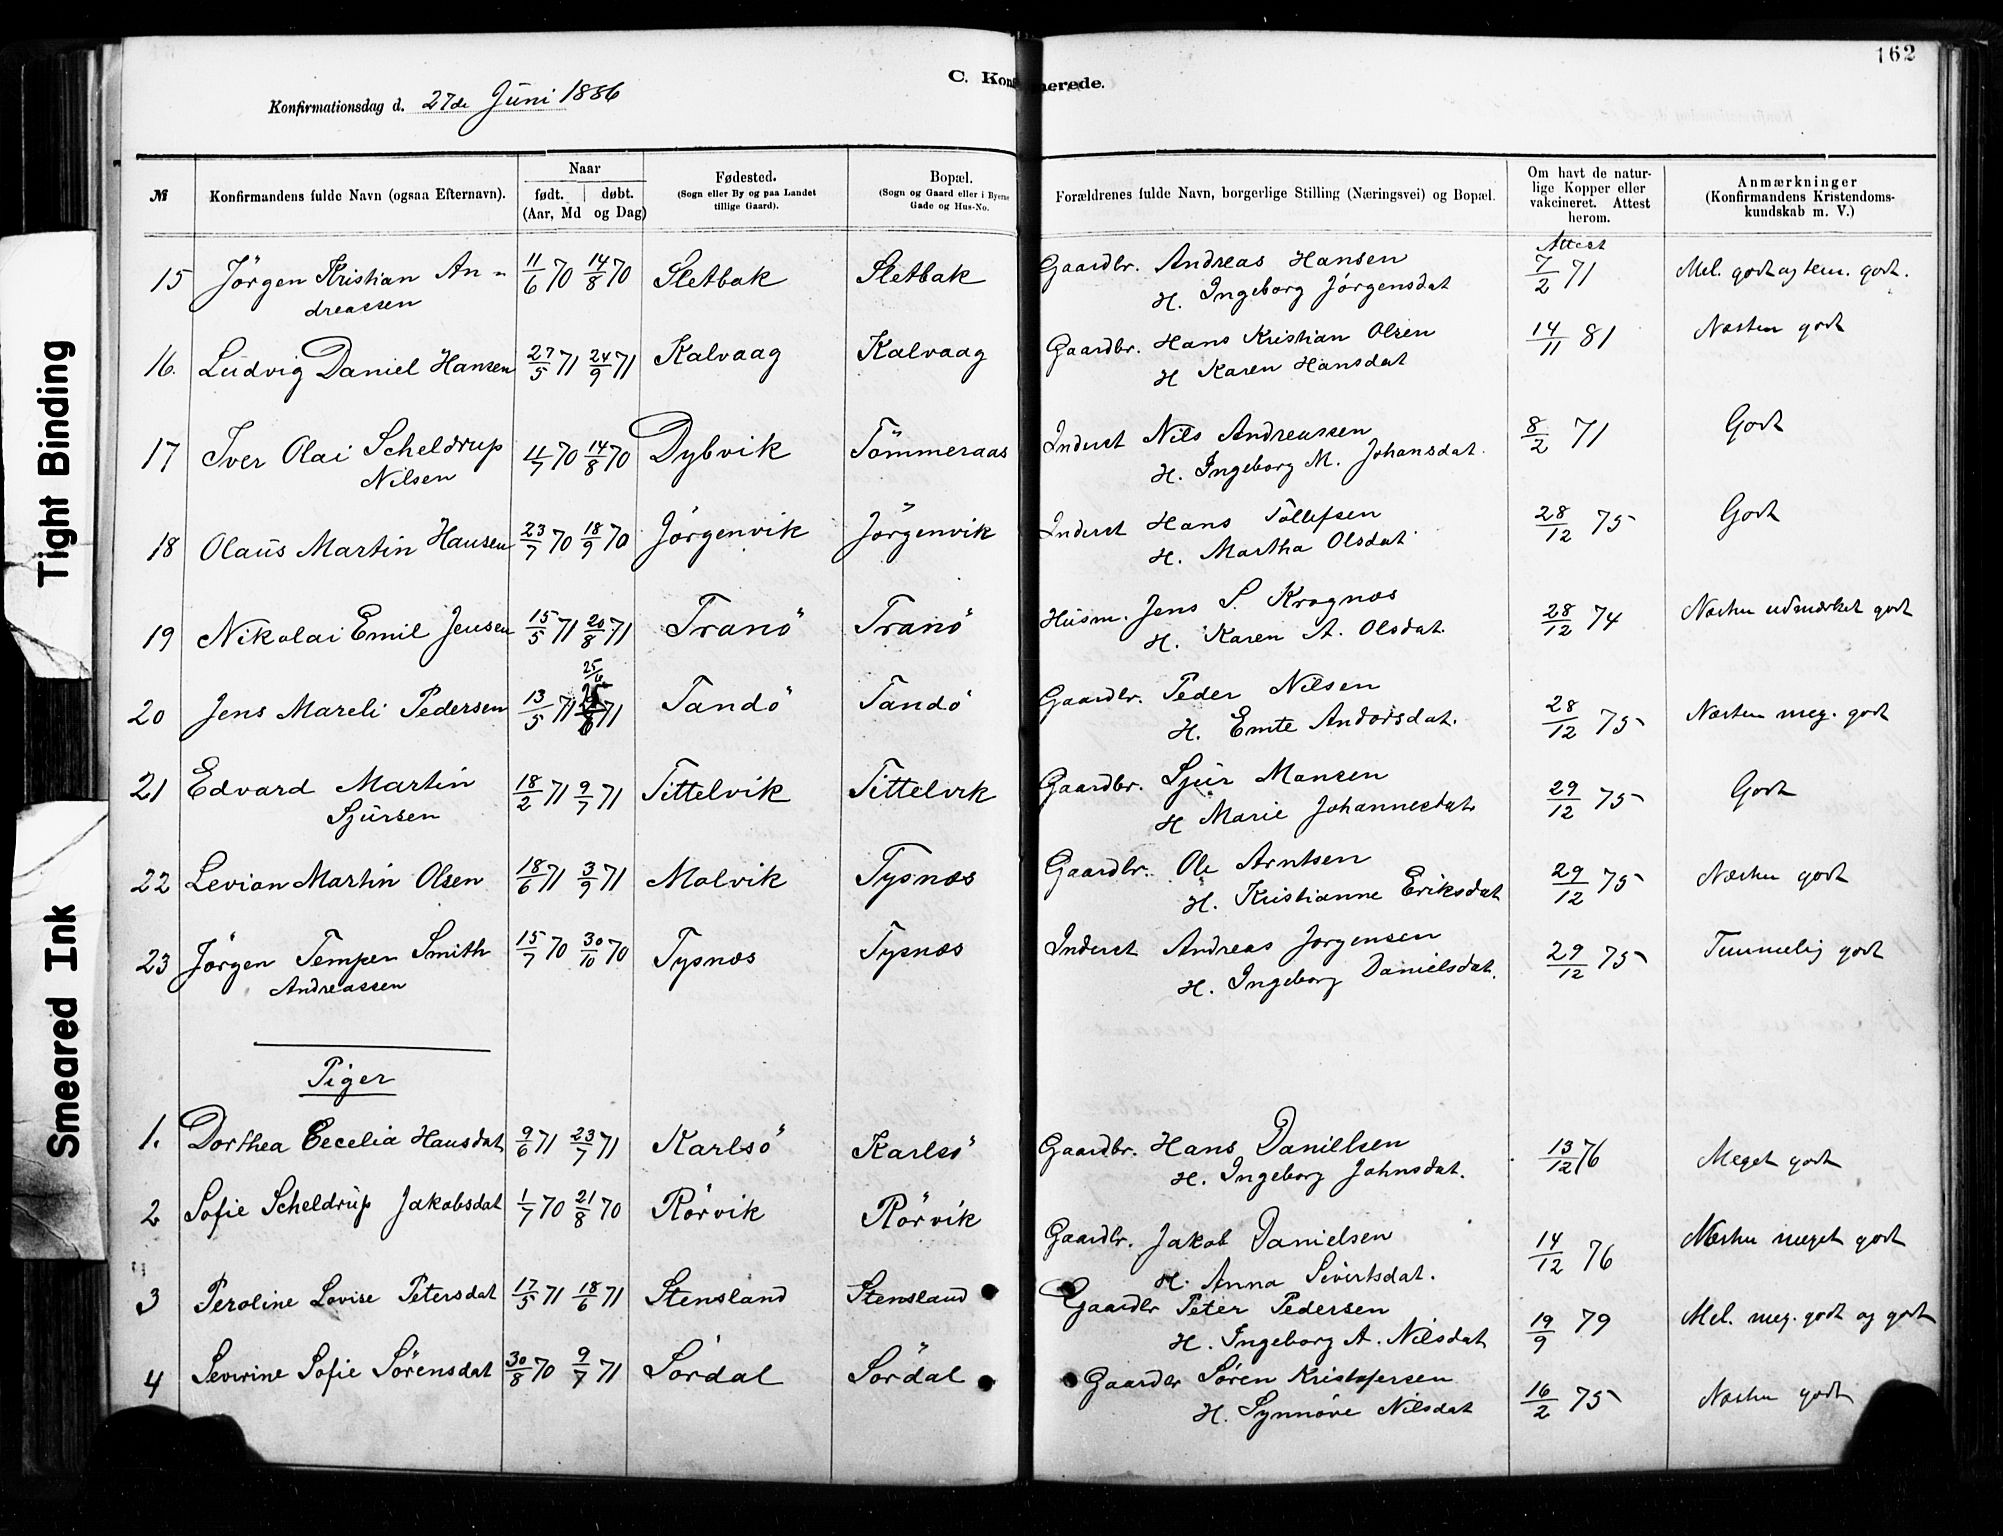 162
C. Konfirmerede.
Konfirmationsdag d. 27de Juni 1886
№
Konfirmandens fulde Navn (ogsaa Efternavn).
Naar
født. | døbt.
(Aar, Md og Dag)
Fødested.
(Sogn eller By og paa Landet
tillige Gaard).
Bopæl.
(Sogn og Gaard eller i Byerne
Gade og Hus-No.
Forældrenes fulde Navn, borgerlige Stilling (Næringsvei) og Bopæl.
Om havt de natur-
lige Kopper eller
vakcineret. Attest
herom.
Anmærkninger
(Konfirmandens Kristendoms-
kundskab m. V.)
Attest
15 Jörgen Kristian An- 11/6 70 14/8 70 Sletbak Sletbak Gaardbr. Andreas Hansen 7/2 71 Mel. godt og tem. godt.
dreassen H. Ingeborg Jörgensdat
16. Ludvig Daniel Hansen 27/5 71 24/9 71 Kalvaag Kalvaag Gaardbr. Hans Kristian Olsen 14/11 81 Næsten godt
H Karen Hansdat
17 Iver Olai Scheldrup 11/7 70 14/8 70 Dybvik Tömmeraas Inderst Nils Andreassen 8/2 71 Godt
Nilsen H. Ingeborg M. Johansdat.
18 Olaus Martin Hansen 23/7 70 18/9 70 Jörgenvik Jörgenvik Inderst Hans Tollefsen 28/12 75 Godt
H. Martha Olsdat
19 Nikolai Emil Jensen 15/5 71 20/8 71 Tranö Tranö Husm. Jens S. Kragnæs 28/12 74 Næsten udmærket godt
H. Karen A. Olsdat.
25/6
20 Jens Mareli Pedersen 13/5 71 25/6 71 Tandö Tandö Gaardbr. Peder Nilsen 28/12 75 Næsten meg. godt
H. Emte Andorsdat.
21 Edvard Martin 18/2 71 9/7 71 Tittelvik Tittelvik Gaardbr. Sjur Monsen 29/12 75 Godt
Sjursen H Marie Johannesdat
22 Levian Martin Olsen 18/6 71 3/9 71 Molvik Tysnæs Gaardbr. Ole Arntsen 29/12 75 Næsten godt
H. Kristianne Eriksdat
23 Jörgen Temper Smith 15/7 70 30/10 70 Tysnæs Tysnæs Inderst Andreas Jorgensen 29/12 75 Temmelig godt
Andreassen H. Ingeborg Danielsdat.
Piger
1. Dorthea Cecelia Hansdat 9/6 71 23/7 71 Karlsö Karlsö Gaardbr. Hans Daniellsen 13/12 76 Meget godt
H. Ingeborg Johnsdat.
2 Sofie Scheldrup Jakobsdat 1/7 70 21/8 70 Rörvik Rörvik Gaardbr. Jakob Danielsen 14/12 76 Næsten meget godt
H. Anna Sivertsdat.
3 Peroline Lovise Petersdat 17/5 71 18/6 71 Stensland Stensland Gaardbr Peter Pedersen 19/9 79 Mel. meg. godt og godt
H. Ingeborg A. Nilsdat
4 Sevirine Sofie Sörensdat 30/8 70 9/7 71 Sördal Sördal Gaardbr Sören Kristofersen 16/2 75 Næsten godt
H. Synnöve Nilsdat
Tight Binding
Smeared Ink